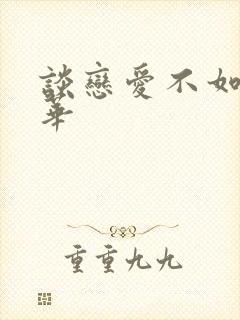 談戀愛不如
華
重重九九